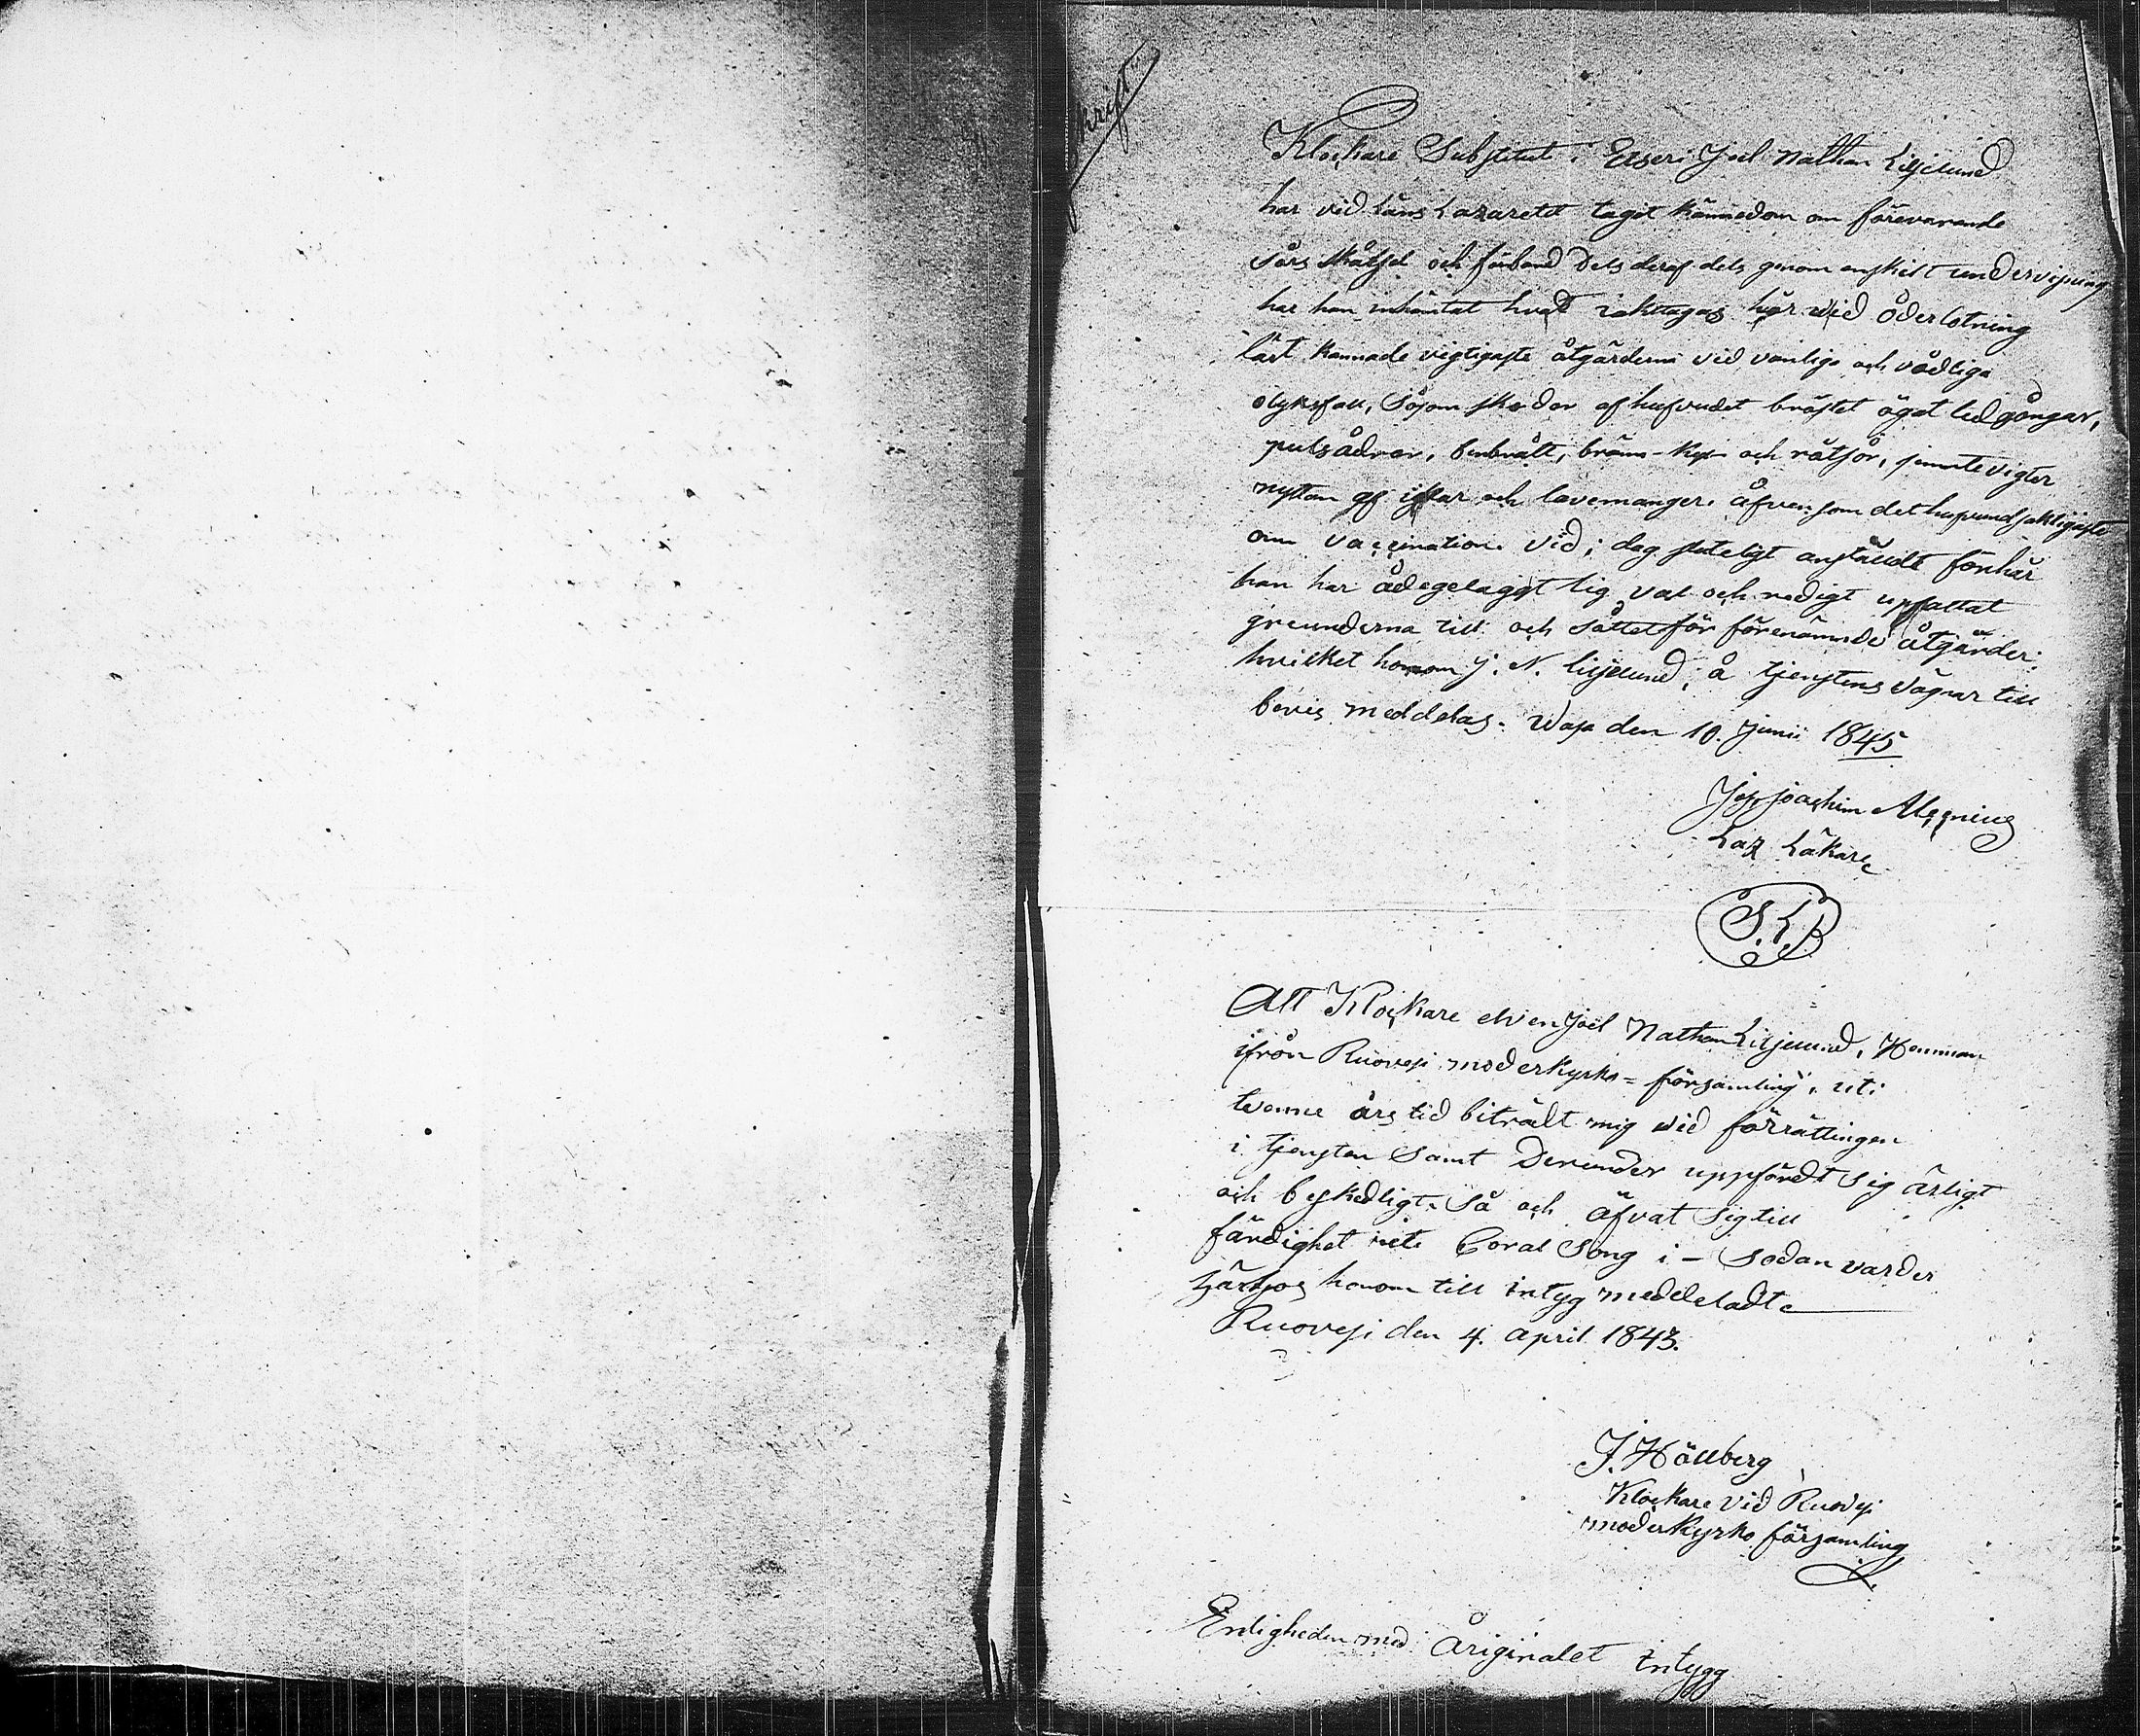 krift
Klockare Substitut i Etseri Joel Nathan Liljelund
har vid Läns Lazaretet tagit kännedom om förevarande
Sårs skåtsel och förband Dels deraf dels genom enskilt undervisning
har han inhämtat hvad iakttagas bör vid åderlotning
lärt kannade vigtigaste åtgärderna vid vanliga och vådliga
olyksfall, Såsom skador af hufvudet bröstet ögat ledgångar,
pulsådror, benbrått, bränn- och rötsår, jemte vigten
nyttan af iglar och lavemanger äfvensom det hufvudsakligaste
om vaccination. Vid i dag anstäldt förhör
han har ådagelaggt sig väl och redigt upfattat
grunderna till och Sättet för förenämnde åtgärder
hvilket honom J. N. Liljelund, å tjenstens vägnar till
bevis meddelas. Wasa den 10. Junii 1845
Joachim
Laz Läkare
Att Klockare elven Joel Nathan Liljelund, Hemman
ifrån Ruovesi moderkyrko=församling, uti
tvenne års tid biträdt mig vid förrättingen
i tjensten Samt Derunder uppfördt sig ärligt
och beskedligt. Så och äfvat sig till
färdighet uti Coral Song i - Sodan varder
härhos honom till intyg meddeladt
Ruovesi den 4. April 1843.
J. Hällberg
Klockare vid Ruovesi
moderkyrko församling
Enligheden med Åriginalet intygg